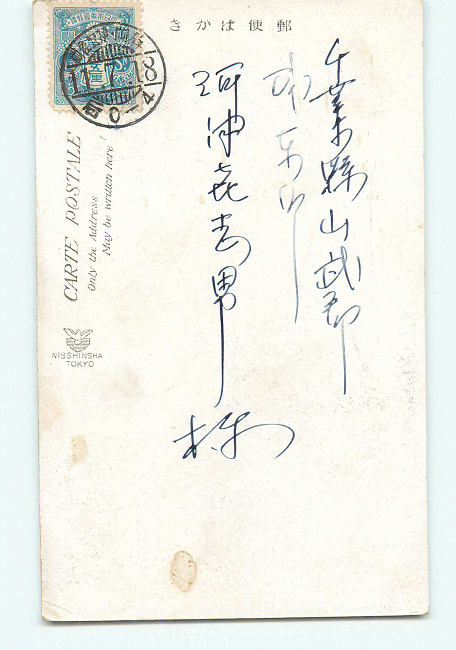 きかはば便郵
千葉縣山武郡
東町
河津㐂志男
様
CARTE POSTALE
Only the Address
May be written here!
NISSHINSHA
TOKYO